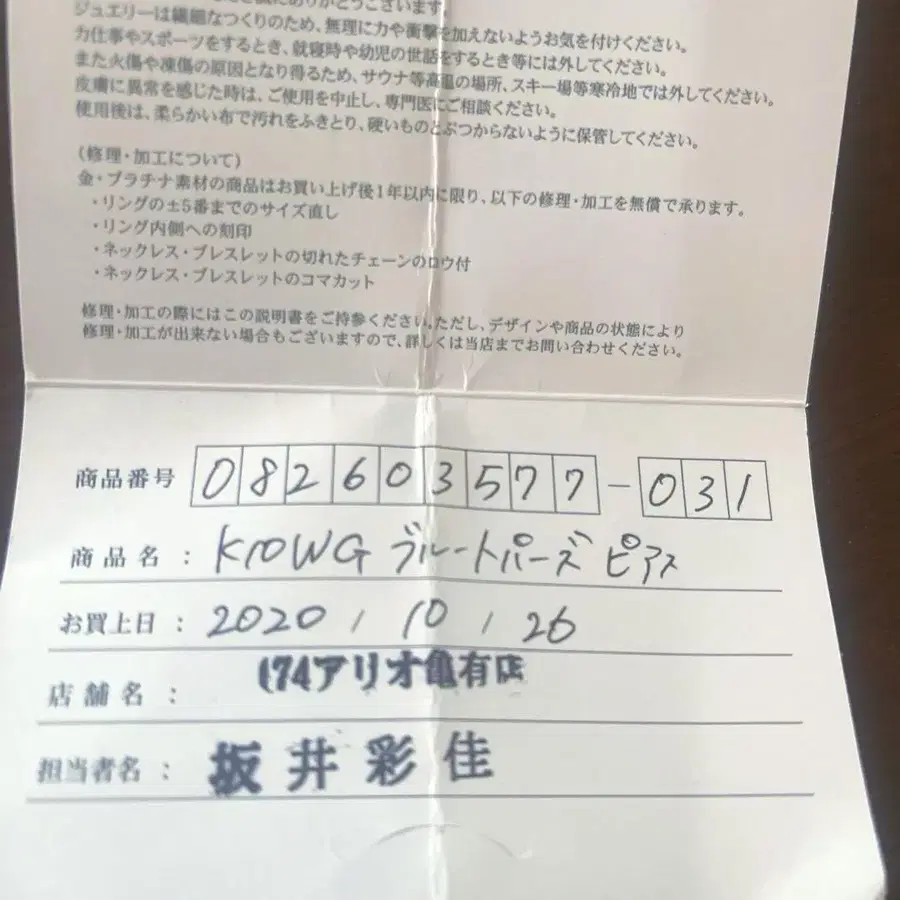 誠にありがとうございます
ジュエリーは繊細なつくりのため、無理に力や衝撃を加えないようお気を付けください。
力仕事やスポーツをするとき、就寝時や幼児の世話をするとき等には外してください。
また火傷や凍傷の原因となり得るため、サウナ等高温の場所、スキー場等寒冷地では外してください。
皮膚に異常を感じた時は、ご使用を中止し、専門医にご相談ください。
使用後は、柔らかい布で汚れをふきとり、硬いものとぶつからないように保管してください。
(修理・加工について)
金・プラチナ素材の商品はお買い上げ後1年以内に限り、以下の修理・加工を無償で承ります。
・リングの±5番までのサイズ直し
・リング内側への刻印
・ネックレス・ブレスレットの切れたチェーンのロウ付
・ネックレス・ブレスレットのコマカット
修理・加工の際にはこの説明書をご持参ください。ただし、デザインや商品の状態により
修理・加工が出来ない場合もございますので、詳しくは当店までお問い合わせください。
商品番号 0826035777-031
商品名：K10WG ブルートパーズ ピアス
お買上日：2020, 10, 26
店舗名：174アリオ亀有店
担当者名：坂井彩佳